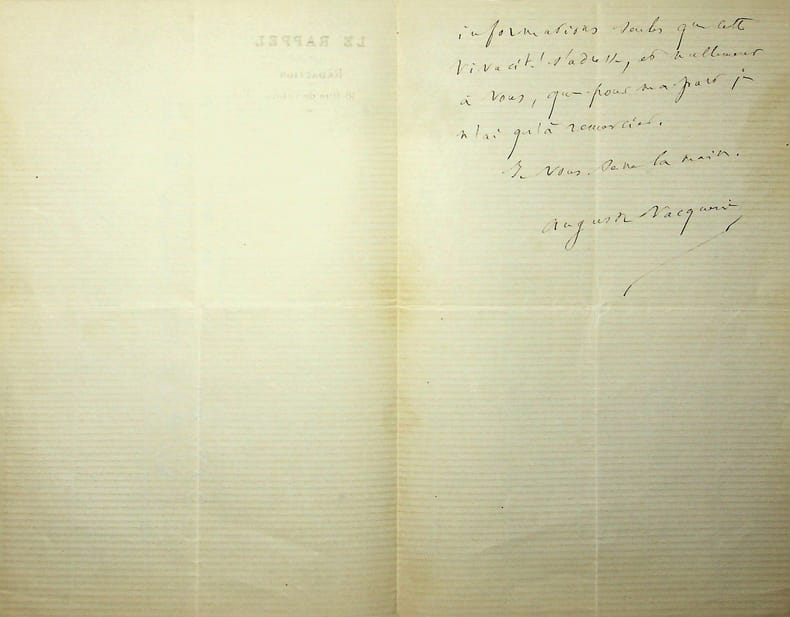 LE RAPPEL
RÉDACTION
informations seules que cette
vivacité s'adresse, et nullement
à vous, que pour ma part je
n'ai qu'à remercier.
Je vous serre la main.
Auguste Vacquerie